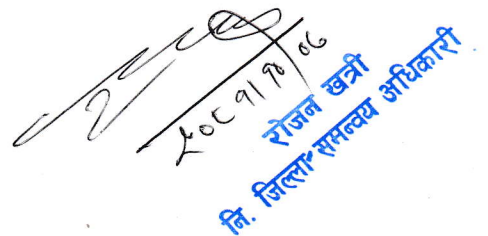 २०८१/१०/०८
रोजन खत्री
नि. जिल्ला समन्वय अधिकारी